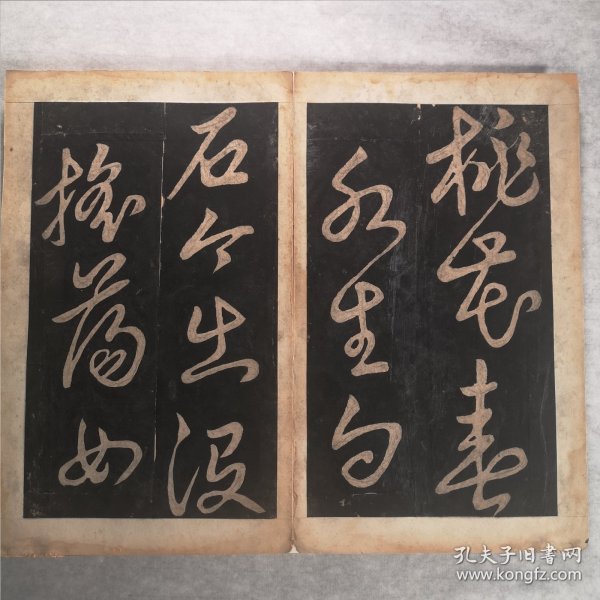 桃花春
水生白
石今出没
摇荡女
孔夫子旧书网
www.kongfz.com